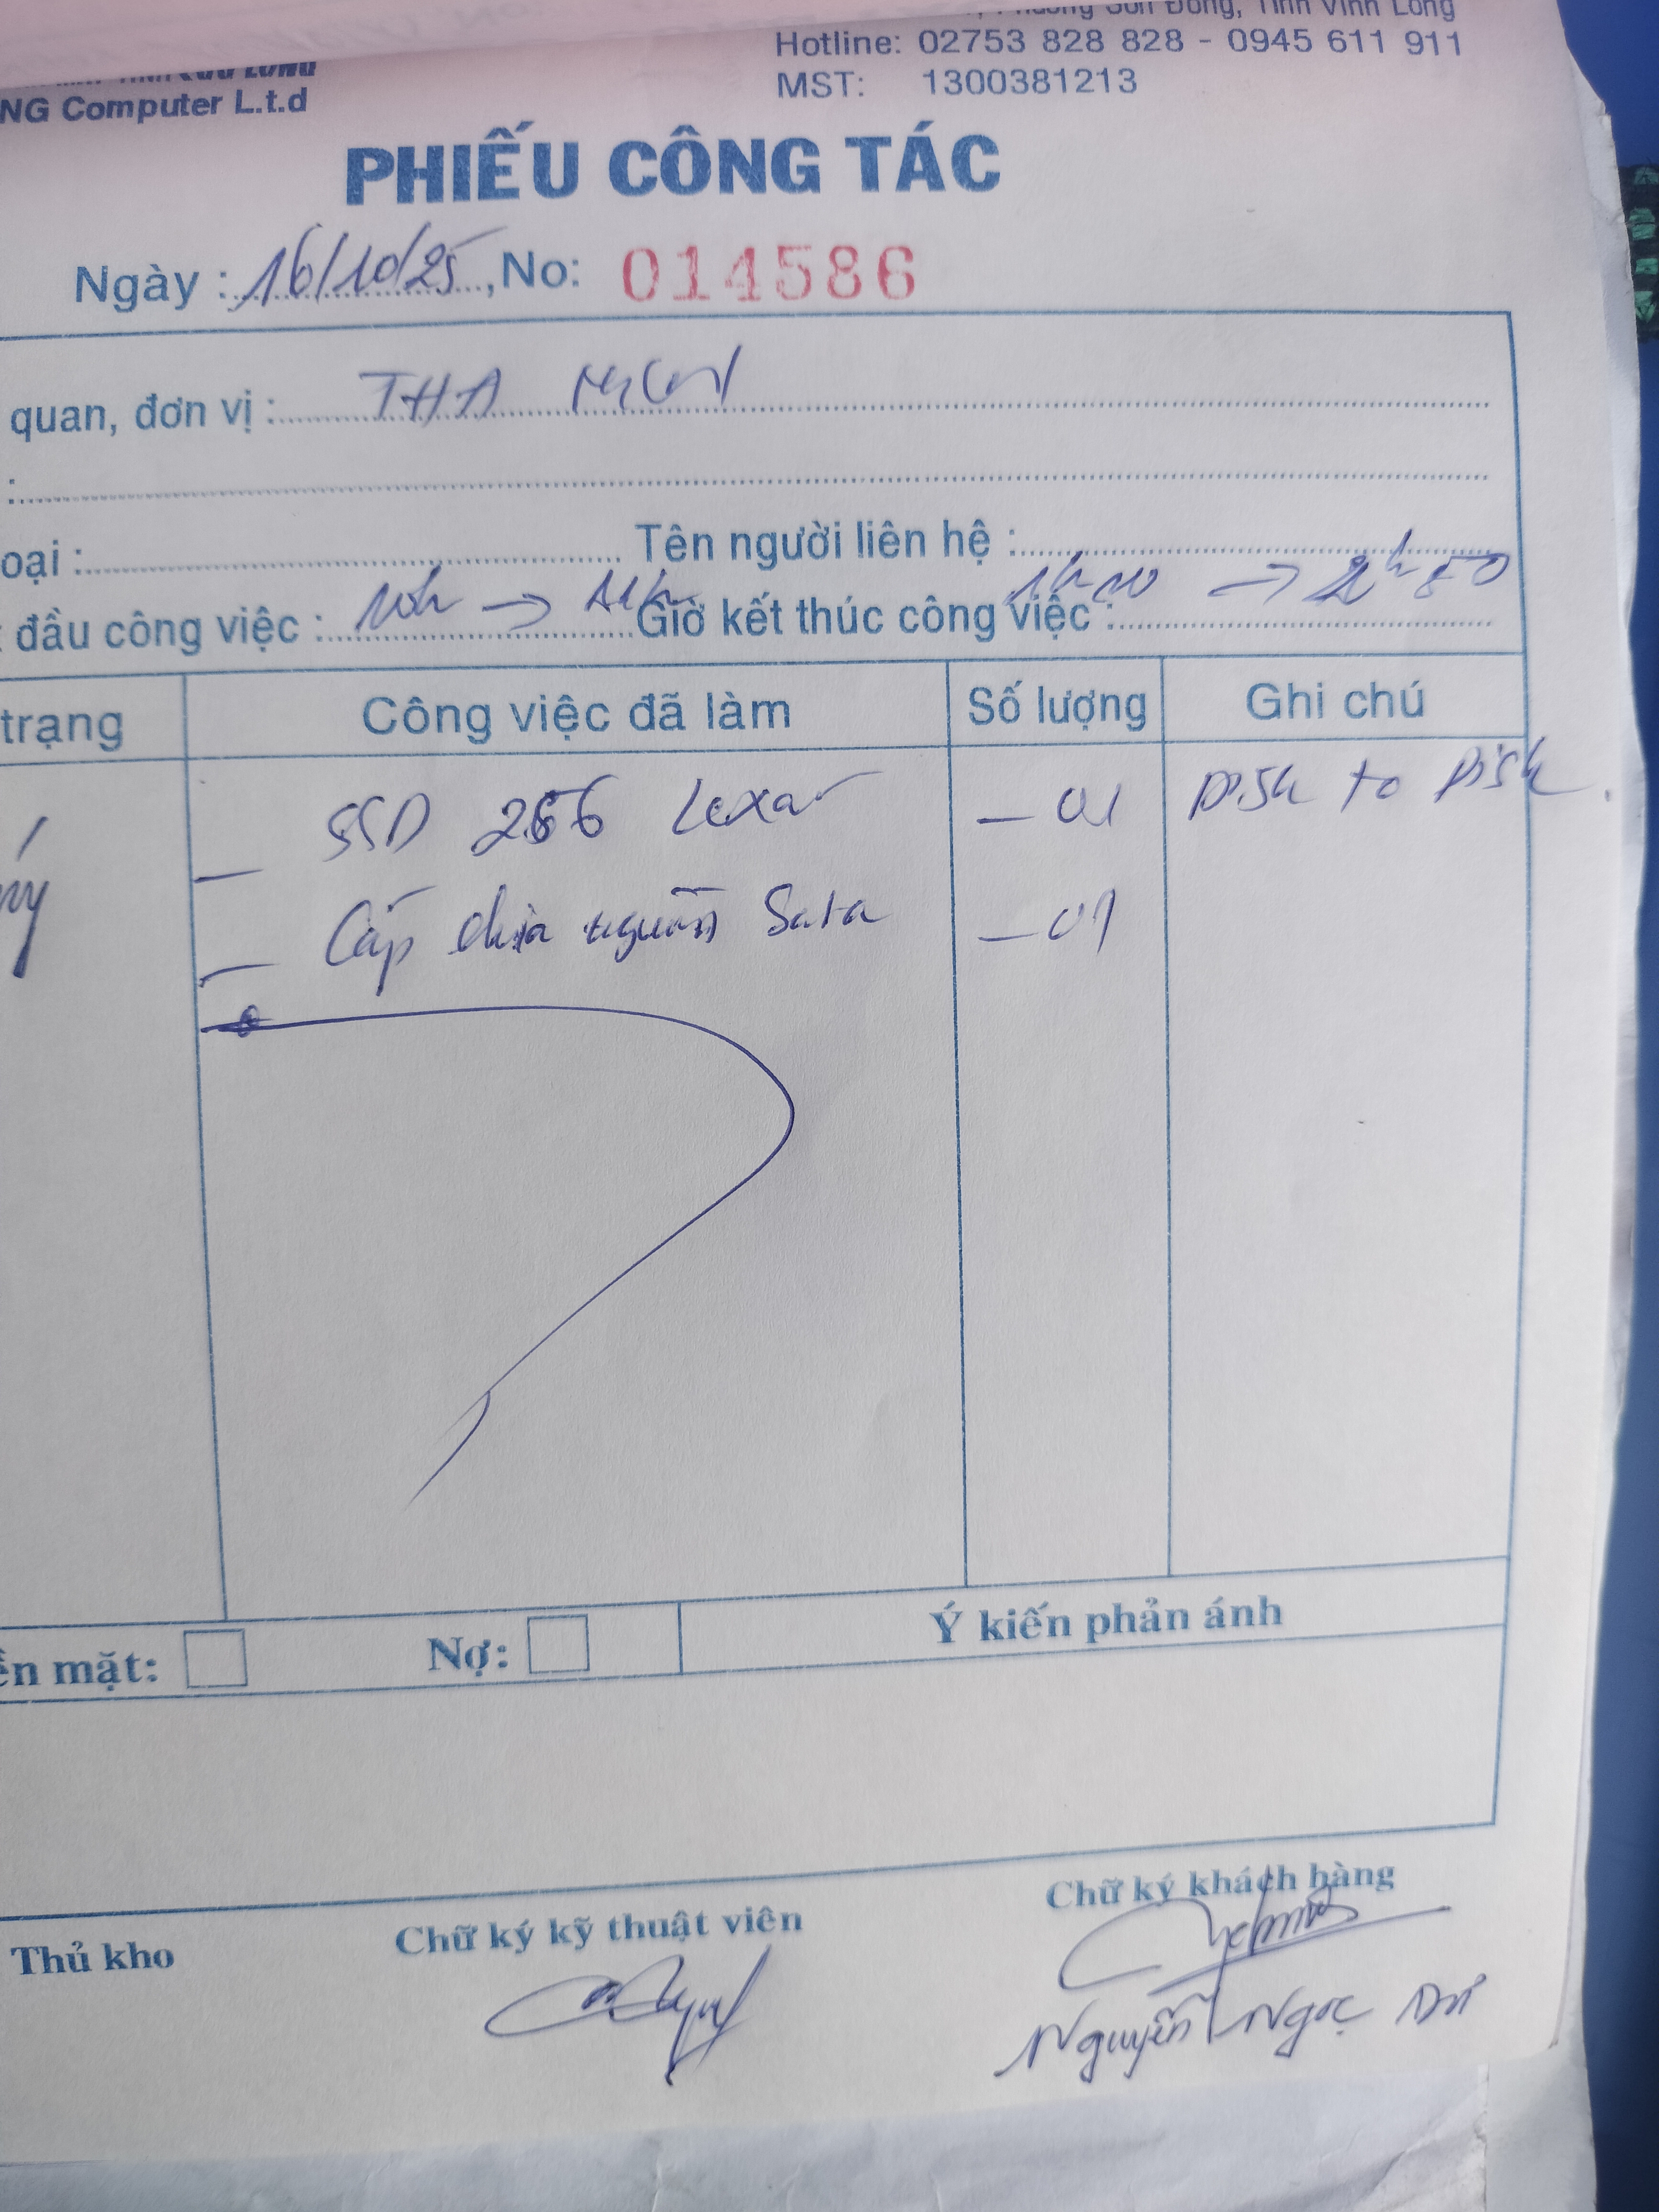 Phường Sơn Đông, Tỉnh Vĩnh Long
Hotline: 02753 828 828 - 0945 611 911
MST: 1300381213
NG Computer L.t.d
PHIẾU CÔNG TÁC
Ngày : 16/10/25, No: 014586
quan, đơn vị : THA
:
oại : Tên người liên hệ :
đầu công việc : 10h → 11h Giờ kết thúc công việc : 1h10 → 2h50
trạng Công việc đã làm Số lượng Ghi chú
- SSD 256 Lexar - 01 Disk to Disk.
- Cáp chia nguồn Sata - 01
ền mặt: Nợ: Ý kiến phản ánh
Thủ kho Chữ ký kỹ thuật viên Chữ ký khách hàng
Nguyễn Ngọc